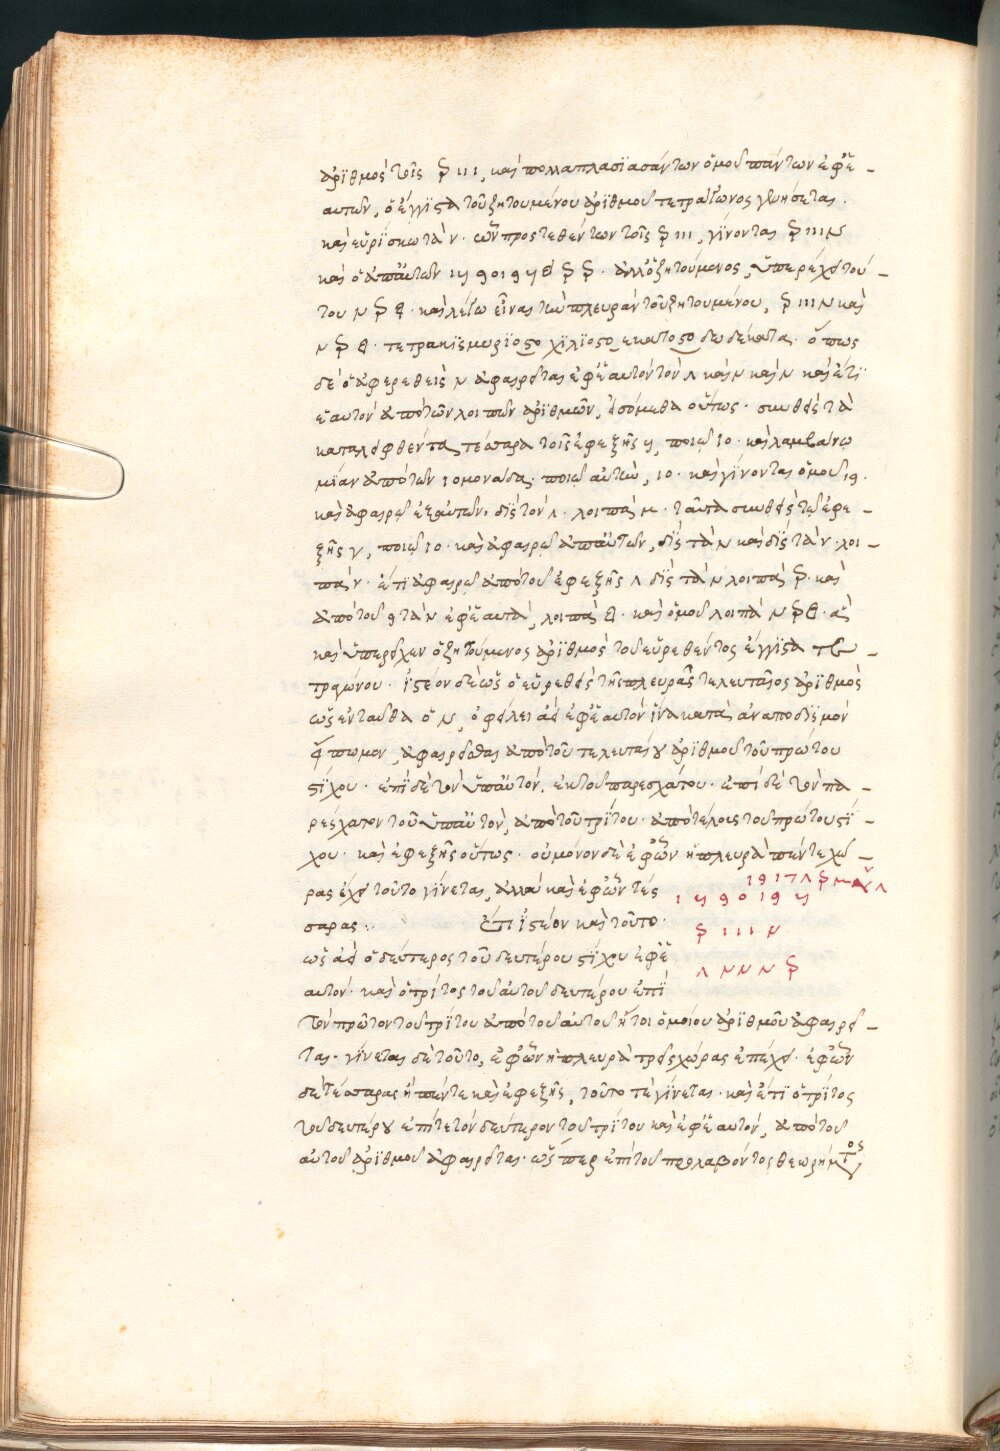 ἀριθμὸς τοῖς καὶ πολλαπλασιασάντων ὁμοῦ πάντων ἐφ' ἑ-
αυτῶν, ὁ ἔγγιστα τοῦ ζητουμένου ἀριθμοῦ τετράγωνος γενήσεται.
καὶ εὑρίσκω τὰ ὧν προστεθέντων τοῖς γίνονται
καὶ ὁ ἀπ' αὐτῶν ἀλλ' ὁ ζητούμενος, ὑπερέχει τού-
του καὶ λέγω εἶναι τὴν πλευρὰν τοῦ ζητουμένου, καὶ
τετρακισμυριοστο χιλιοστο εκατοστο δωδέκατα. ὅπως
δὲ ὁ ἀφερεθεὶς ἀφαιρεῖται ἐφ' ἑαυτὸν τὸν καὶ καὶ καὶ ἔτι
ἑαυτὸν ἀπὸ τῶν λοιπῶν ἀριθμῶν, εἰσόμεθα οὕτως. συνθεὶς τὰ
καταλειφθέντα τέσσαρα τοῖς ἐφεξῆς ποιῶ καὶ λαμβάνω
μίαν ἀπὸ τῶν μονάδα. ποιῶ αὐτὴν, καὶ γίνονται ὁμοῦ
καὶ ἀφαιρῶ ἐξ αὐτῶν δὶς τὸν λοιπὰ ταῦτα συνθεὶς τῷ ἐφε-
ξῆς ποιῶ καὶ ἀφαιρῶ ἀπ' αὐτῶν, δὶς τὰ καὶ δὶς τὰ λοι-
πὰ ἔτι ἀφαιρῶ ἀπὸ τοῦ ἐφεξῆς δὶς τὰ λοιπὰ καὶ
ἀπὸ τοῦ τὰ ἐφ' ἑαυτὰ, λοιπὰ καὶ ὁμοῦ λοιπὰ ἃ
καὶ ὑπερεῖχεν ὁ ζητούμενος ἀριθμὸς τοῦ εὑρεθέντος ἔγγιστα τε-
τραγώνου. ἰστέον δὲ ὡς ὁ εὑρεθεὶς τῆς πλευρᾶς τελευταῖος ἀριθμὸς
ὡς ἐνταῦθα ὁ ὀφείλει ἀεὶ ἐφ' ἑαυτὸν ἵνα κατὰ ἀναποδισμὸν
εἴπωμεν, ἀφαιρεῖσθαι ἀπὸ τοῦ τελευταίου ἀριθμοῦ τοῦ πρώτου
στίχου. ἐπὶ δὲ τὸν ὑπ' αὐτὸν. ἐκ τοῦ παρεσχάτου. ἐπὶ δὲ τὸν πα-
ρέσχατον τοῦ ὑπ' αὐτὸν, ἀπὸ τοῦ τρίτου. ἀπὸ τέλους τοῦ πρώτου στί-
χου. καὶ ἐφεξῆς οὕτως. οὐ μόνον δὲ ἐφ' ὧν ἡ πλευρὰ πέντε χώ-
ρας ἔχει τοῦτο γίνεται, ἀλλὰ καὶ ἐφ' ὧν τέσ
σαρας :. ἔτι ἰστέον καὶ τοῦτο.
ὡς ἀεὶ ὁ δεύτερος τοῦ δευτέρου στίχου ἐφ' ἑ
αυτὸν. καὶ ὁ τρίτος τοῦ αὐτοῦ δευτέρου ἐπὶ
τὸν πρῶτον τοῦ τρίτου ἀπὸ τοῦ αὐτοῦ ἤτοι ὁμοίου ἀριθμοῦ ἀφαιρεῖ-
ται. γίνεται δὲ τοῦτο, ἐφ' ὧν ἡ πλευρὰ τρεῖς χώρας ἐπέχει. ἐφ' ὧν
δὲ τέσσαρας ἢ πέντε καὶ ἐφεξῆς, τοῦτο τε γίνεται. καὶ ἔτι ὁ τρίτος
τοῦ δευτέρου ἐπί τε τὸν δεύτερον τοῦ τρίτου καὶ ἐφ' ἑαυτὸν, ἀπὸ τοῦ
αὐτοῦ ἀριθμοῦ ἀφαιρεῖται. ὥσπερ ἐπὶ τοῦ προλαβόντος θεωρήματος